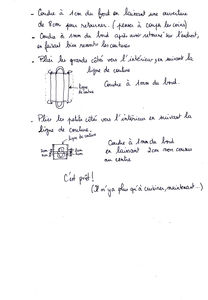 - Coudre à 1cm du bord en laissant une ouverture
de 8cm pour retourner. (penser à couper les coins)
- Coudre à 1mm du bord après avoir retourné sur l'endroit,
en faisant bien ressortir les coutures
- Plier les grands côtés vers l'intérieur en suivant la
ligne de couture
Coudre à 1mm du bord.
ligne
de couture
- Plier les petits côtés vers l'intérieur en suivant la
ligne de couture.
ligne de couture
Coudre à 1mm du bord
en laissant 2cm non cousu
au centre
2cm
2cm
C'est prêt!
(Il n'ya plus qu'à cuisiner, maintenant...)